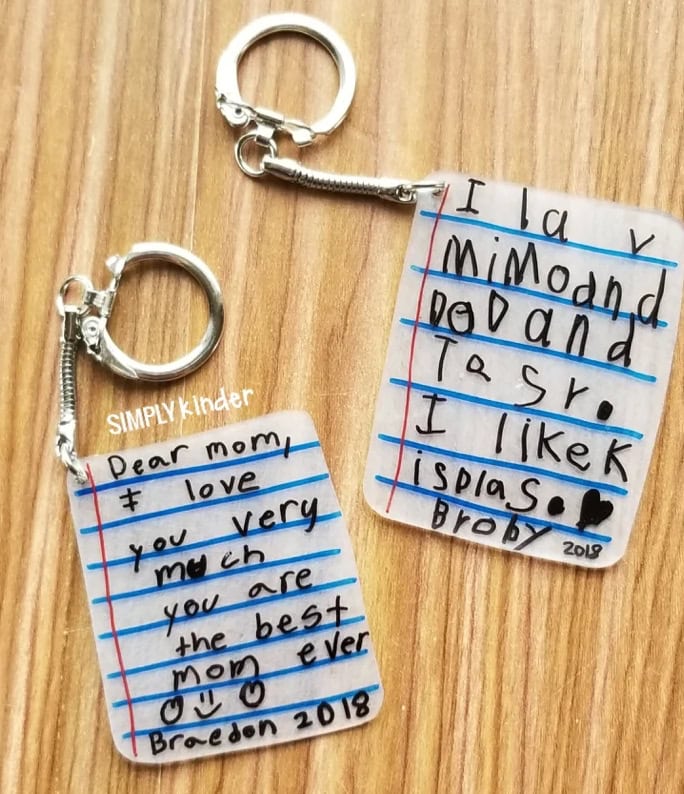 I la v
MiMoand
DOD and
Tasr.
I likeK
isplas.
Broby 2018
SIMPLYkinder
Dear mom,
I love
you very
much
you are
the best
mom ever
Braedon 2018